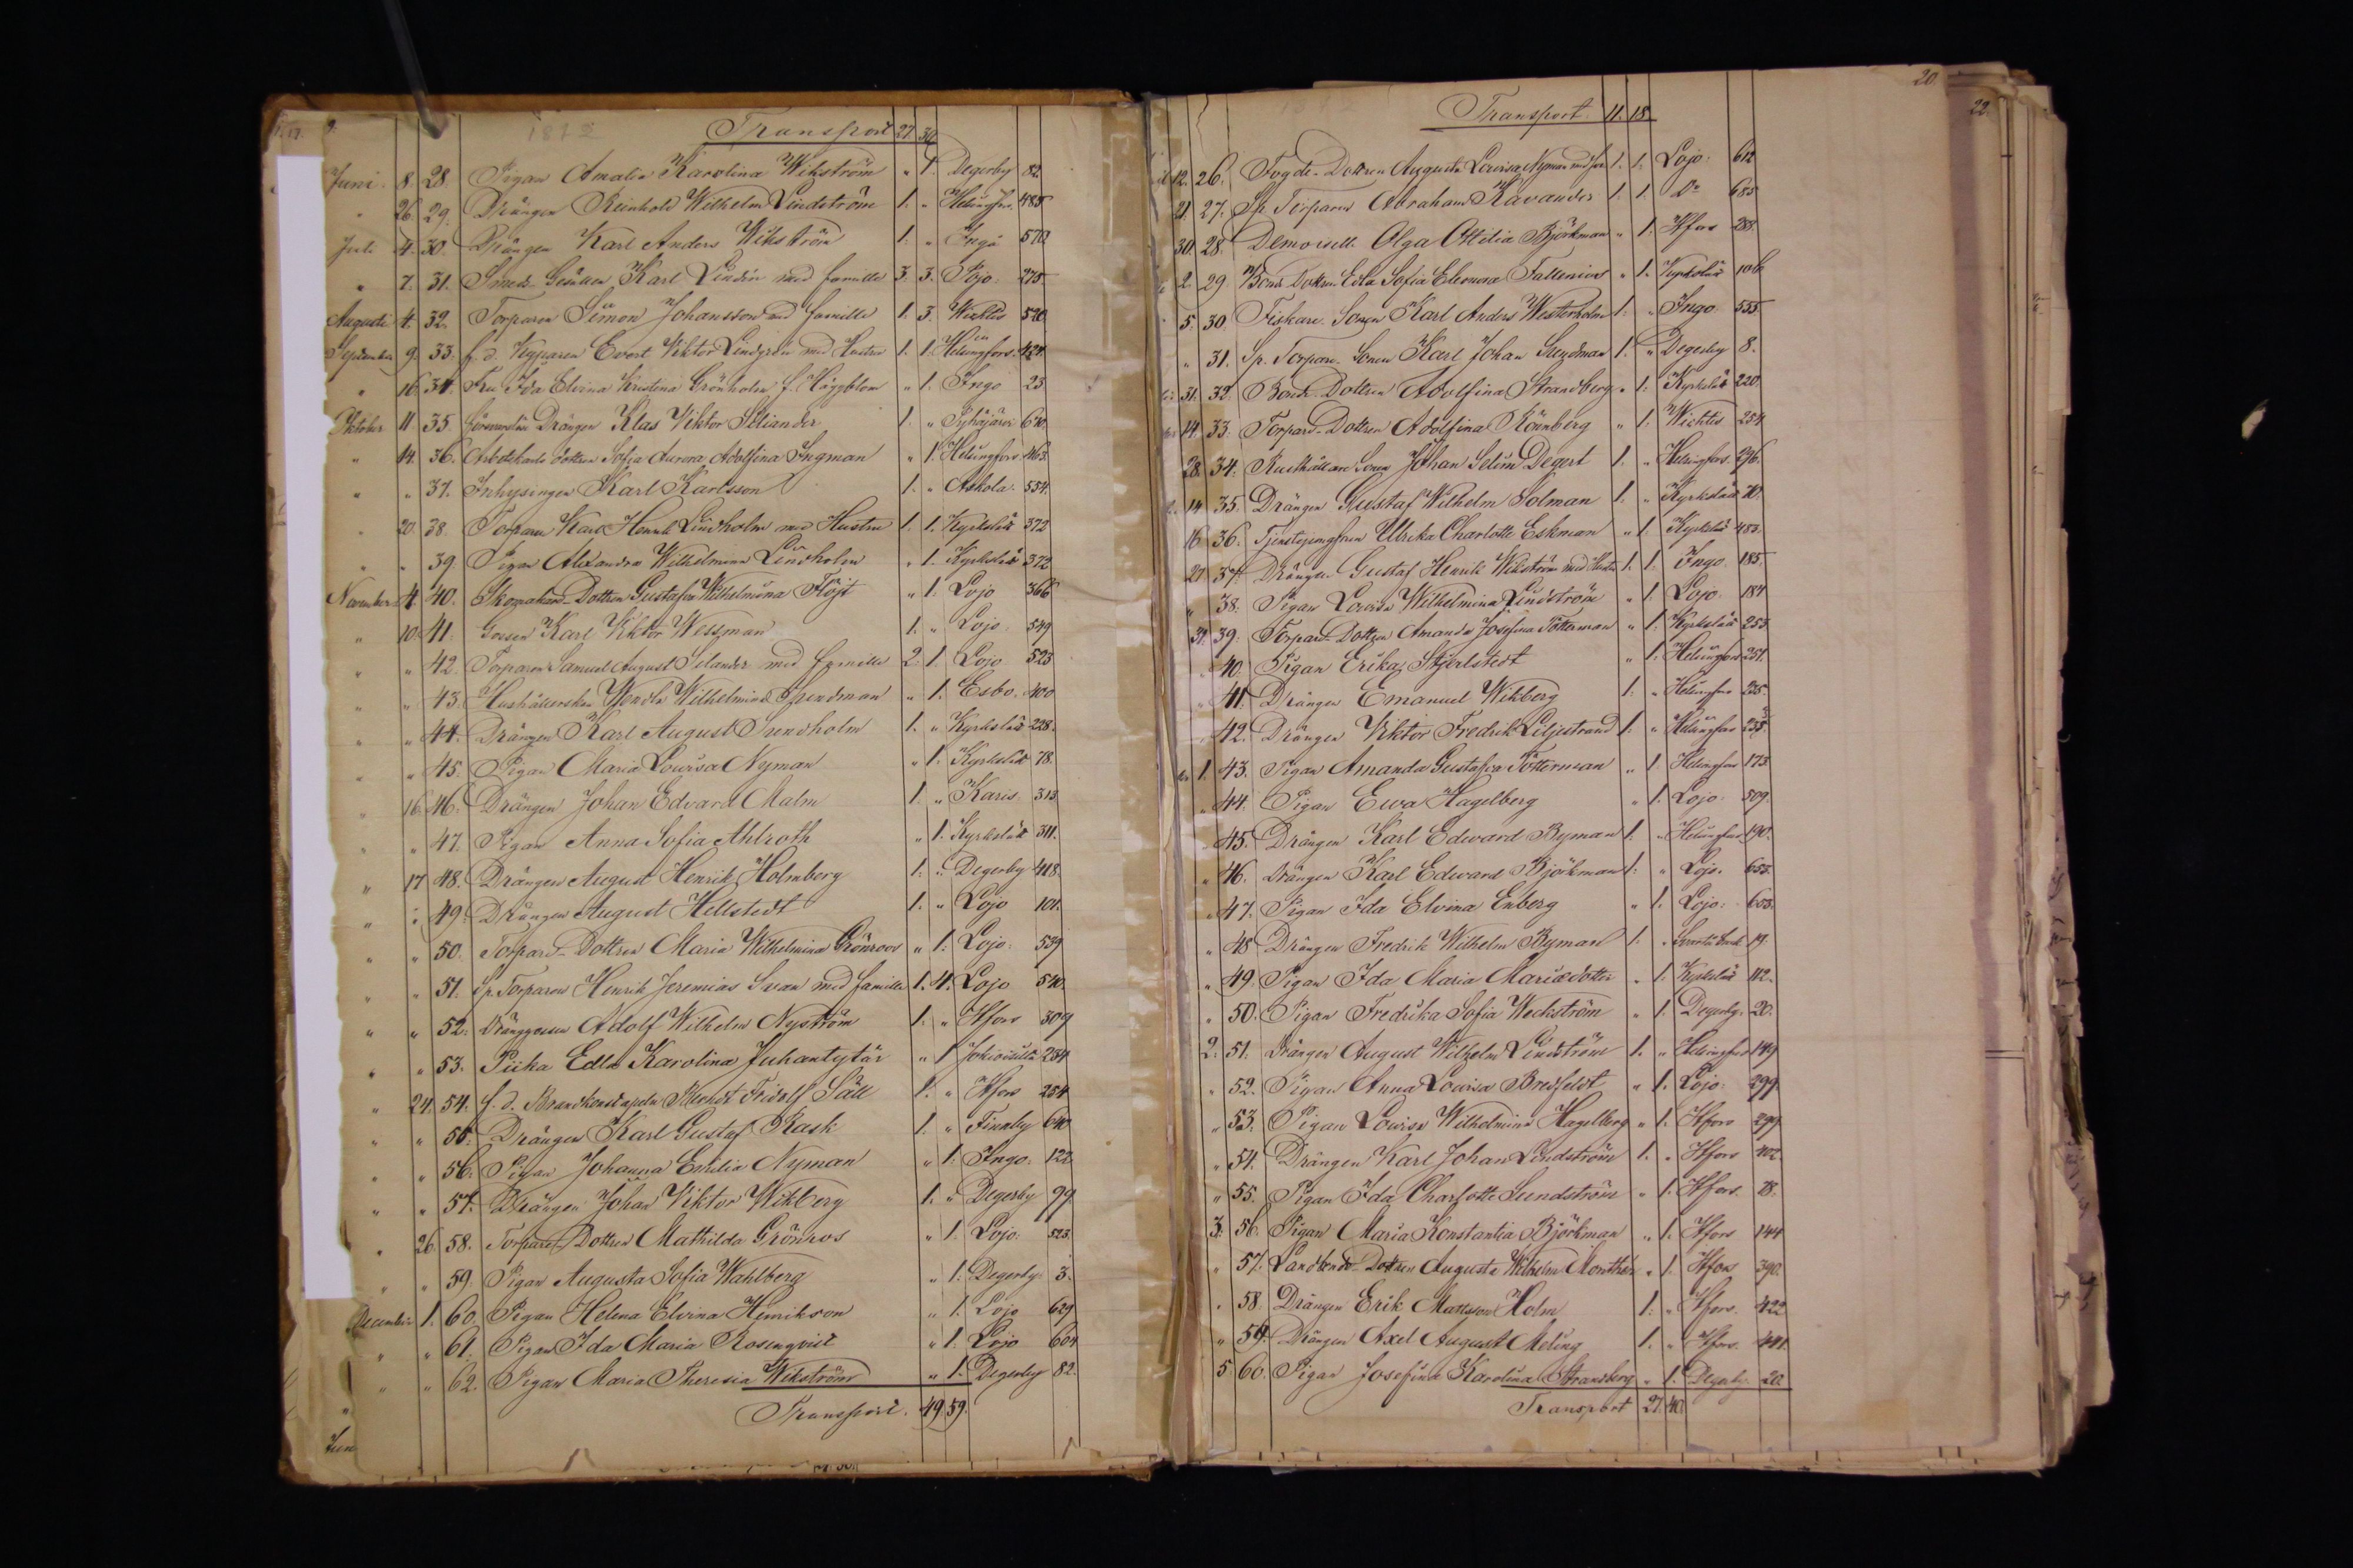 1872 Transport 27. 30.
Juni. 8. 28. Pigan Amalia Karolina Wikström " 1. Degerby 82
" 26. 29. Drängen Reinhold Wilhelm Lindström 1. " Helsingfors. 485
Juli 4. 30. Drängen Karl Anders Wikström 1. " Ingå 570.
" 7. 31. Smeds-Gesällen Karl Lindén med familie 3. 3. Pojo. 275
Augusti 4. 32. Torparen Simon Johansson med familie 1. 3. Wichtis 520.
September 9. 33. f. d. Kyparen Evert Viktor Lindgrén med Hustru 1. 1. Helsingfors. 424.
" 16. 34. Fru Ida Elvina Kristina Grönholm f. Häggblom " 1. Ingo 23
Oktober 11. 35. Drängen Klas Viktor Seliander 1. " Pyhäjärvi 640.
" 14. 36. Arbetskarls dottren Sofia Aurora Adolfina Ingman " 1. Helsingfors 463.
" " 37. Inhysingen Karl Karlsson 1. " Askola. 554.
" 20. 38. Torparen Karl Henrik Lindholm med Hustru 1. 1. Kyrkslät 372
" " 39. Pigan Alexandra Wilhelmina Lindholm " 1. Kyrkslät 372
November 4. 40. Skomakare-Dottren Gustafva Wilhelmina Flöjt " 1. Lojo 366
" 10. 41. Gossen Karl Viktor Wessman 1. " Lojo. 549
" " 42. Torparen Samuel August Selander med familie 2. 1. Lojo 523
" " 43. Hushållerskan Wendla Wilhelmina Sundman " 1. Esbo. 400
" " 44. Drängen Karl August Sundholm 1. " Kyrkslät 228.
" " 45. Pigan Maria Lovisa Nyman " 1. Kyrkslät 78.
" 16. 46. Drängen Johan Edvard Malm 1. " Karis. 313
" " 47. Pigan Anna Sofia Ahlroth " 1. Kyrkslät 311.
" 17 48. Drängen August Henrik Holmberg 1. " Degerby 418.
" " 49. Drängen August Hellstedt 1. " Lojo 101.
" " 50. Torpare-Dottren Maria Wilhelmina Grönroos " 1. Lojo. 539
" " 51. Sp. Torparen Henrik Jeremias Svan med familie 1. 4. Lojo 540
" " 52. Dränggossen Adolf Wilhelm Nyström 1. " Hfors 309
" " 53. Piika Edla Karolina Juhantytär " 1 254
" 24. 54. f. d. Fridolf Säll 1. " Hfors 254
" " 55. Drängen Karl Gustaf Rask 1. " Finnby 640
" " 56. Pigan Johanna Emilia Nyman " 1. Ingo. 122
" " 57. Drängen Johan Viktor Wikberg 1. " Degerby 99
" 26. 58. Torpare-Dottren Mathilda Grönros " 1. Lojo. 523.
" " 59. Pigan Augusta Sofia Wahlberg " 1. Degerby. 3.
December 1. 60. Pigan Helena Elvina Henrikson " 1. Lojo 629
" " 61. Pigan Ida Maria Rosenqvist " 1. Lojo 604
" " 62. Pigan Maria Theresia Wikström " 1. Degerby 82.
Transport. 49. 59.
20
22.
Transport. 11. 18.
12. 26. Fogde-Dottren Augusta Lovisa Nyman 1. 1. Lojo. 612
21. 27. Sp. Torparen Abraham Kavander 1. 1. Do 685
30. 28. Demoiselle Olga Ottilia Björkman " 1. Hfors 288.
2. 29. Bonde Dottren Edla Sofia Eleonora Fallenius " 1. Kyrkslät 106
5. 30. Fiskare-Sonen Karl Anders Westerholm 1. " Ingo. 555.
" 31. Sp. Torpare-Sonen Karl Johan Sundman 1. " Degerby 8.
31. 32. Bonde-Dottren Adolfina Strandberg " 1. Kyrkslät 220.
14. 33. Torpare-Dottren Adolfina Rönnberg " 1. Wichtis 254
28. 34. Rusthållare Sonen Johan Selim Degert 1. " Helsingfors. 296.
14 35. Drängen Gustaf Wilhelm Solman 1. " Kyrkslät 70.
16 36. Tjenstejungfrun Ulrika Charlotte Eskman " 1. Kyrkslät 483.
27 37. Drängen Gustaf Henrik Wikström med Hustru 1. 1. Ingo. 185.
" 38. Pigan Lovisa Wilhelmina Lindström " 1. Lojo. 184
31. 39. Torpare-Dottren Amanda Josefina Tötterman " 1. Kyrkslät 253.
" 40. Pigan Erika Stjerlstedt " 1. Helsingfors 251.
" 41. Drängen Emanuel Wikberg 1. " Helsingfors 235.
" 42. Drängen Viktor Fredrik Liljestrand 1. " Helsingfors 235.
1. 43. Pigan Amanda Gustafva Tötterman " 1. Helsingfors 173
" 44. Pigan Ewa Hagelberg " 1. Lojo. 509.
" 45. Drängen Karl Edward Byman 1. " Helsingfors 190.
" 46. Drängen Karl Edward Björkman 1. " Lojo. 653.
" 47. Pigan Ida Elvina Enberg " 1. Lojo. 653.
" 48 Drängen Fredrik Wilhelm Byman 1. " 19.
" 49. Pigan Ida Maria Mariædotter " 1. Kyrkslät 112.
" 50. Pigan Fredrika Sofia Weckström " 1. Degerby. 20.
2. 51. Drängen August Wilhelm Lindström 1. " Helsingfors 149
" 52. Pigan Anna Lovisa Bredfeldt " 1. Lojo. 299
" 53. Pigan Lovisa Wilhelmina Hagelberg " 1. Hfors 299
" 54. Drängen Karl Johan Lindström 1. " Hfors 402.
" 55. Pigan Ida Charlotte Sundström " 1. Hfors. 78.
3. 56. Pigan Maria Konstantia Björkman " 1. Hfors 144
" 57. Landbonde-Dottren Augusta Wilhelm " 1. Hfors 390.
" 58. Drängen Erik Mattsson Holm 1. " Hfors. 422
" 59. Drängen Axel August Meling 1. " Hfors. 441.
5. 60. Pigan Josefina Karolina Strandberg " 1. Degerby. 20.
Transport 27. 40.